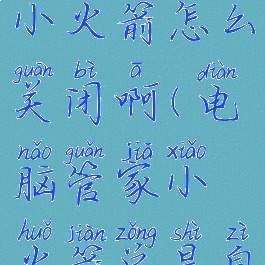 小火箭怎么
guān bì ā diàn
关闭啊(电
nǎo guǎn jiā xiǎo
脑管家小
huǒ jiàn zǒng shì zì
火箭总是自